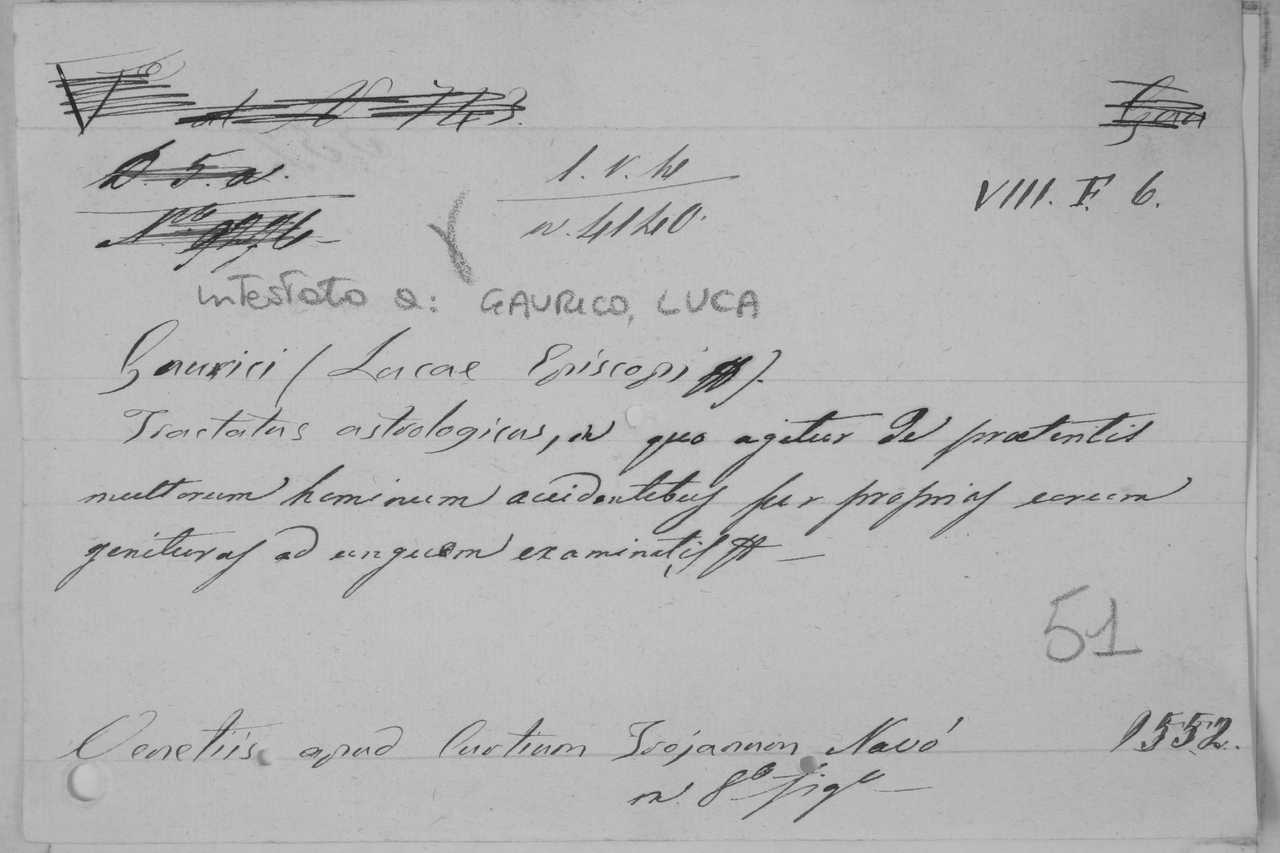 al N 743.
Gau
D. 5. a.
N.ro 9796
1. V. h
n. 4140.
VIII. F. 6.
intestato a: GAURICO, LUCA
Gaurici (Lucae Episcopi).
Tractatus astrologicus, in quo agitur de praeteritis
multorum hominum accidentibus per proprias eorum
genituras ad unguem examinatis
51
Venetiis apud Curtium Trojanum Navó 1552.
in 8.o fig.e